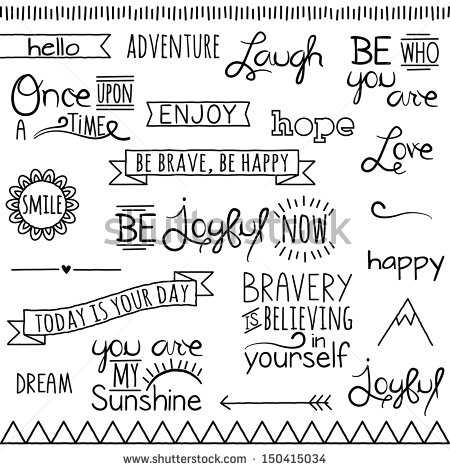 hello
ADVENTURE
Laugh
BE WHO
you
are
Once UPON
A TIME
ENJOY
hope
Love
BE BRAVE, BE HAPPY
SMILE
BE Joyful NOW
shutterstock
happy
TODAY IS YOUR DAY
BRAVERY
IS BELIEVING
in
yourself
you are
MY
Sunshine
DREAM
Joyful
www.shutterstock.com · 150415034